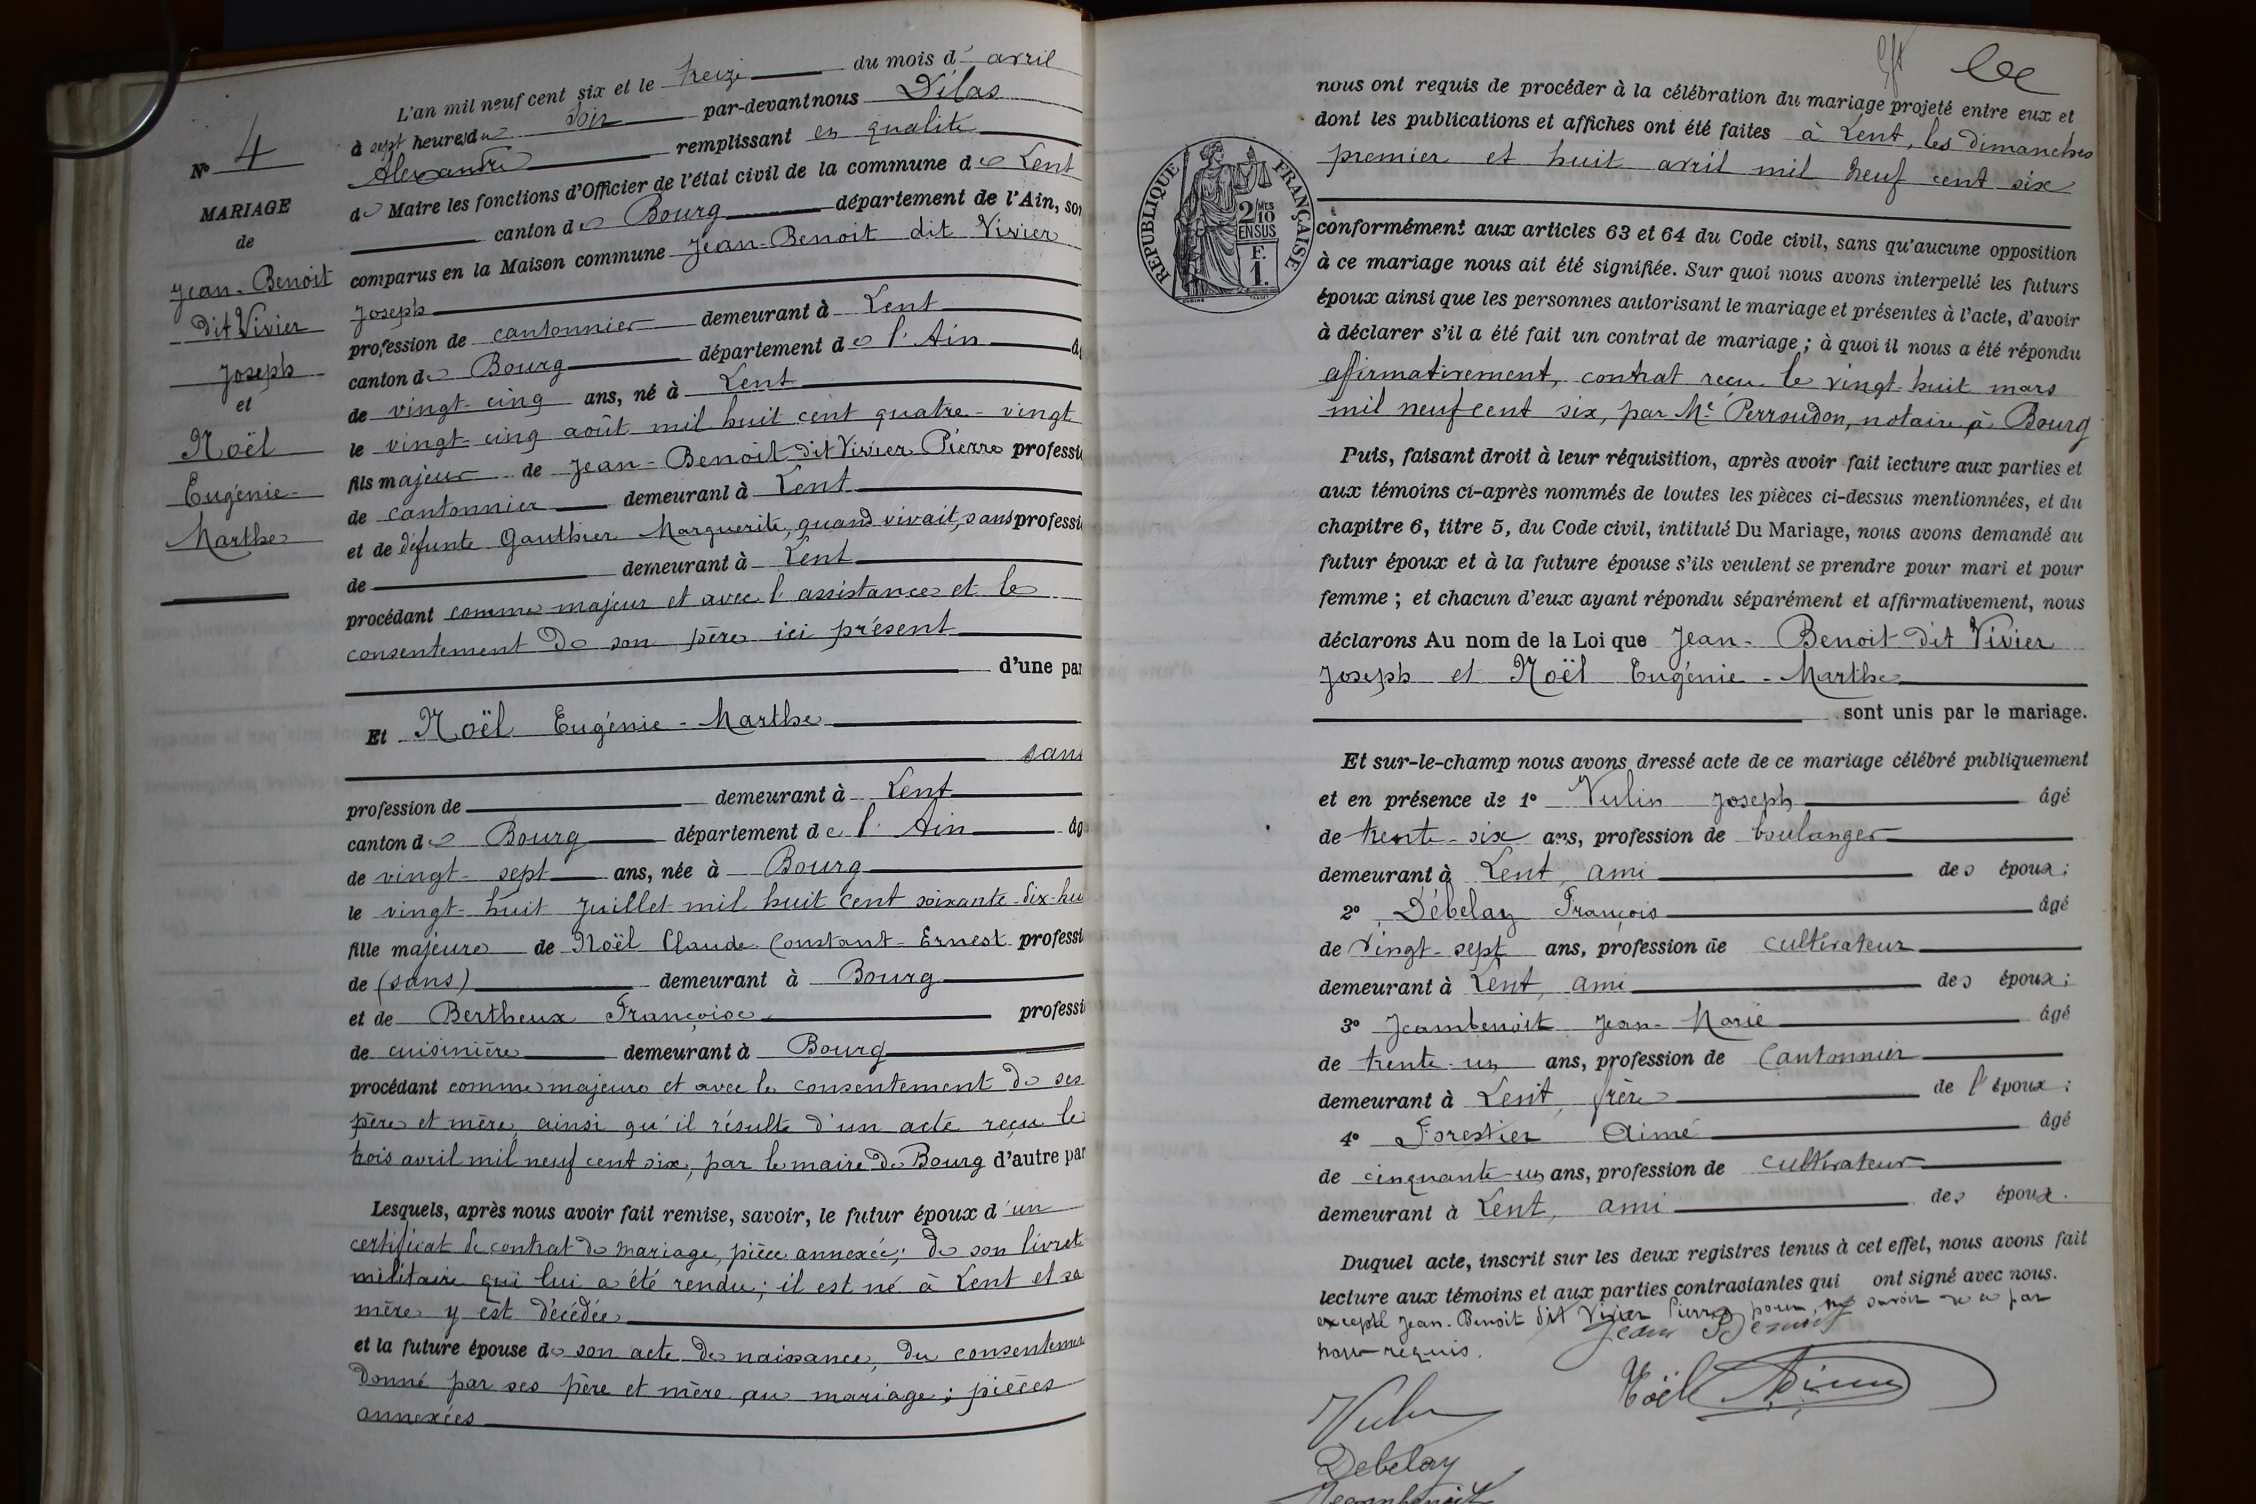 L'an mil neuf cent six et le treize du mois d' avril
à sept heures du soir par-devant nous Délas
Alexandre remplissant en qualité
de Maire les fonctions d'Officier de l'état civil de la commune de Lent
canton de Bourg département de l'Ain, son
comparus en la Maison commune Jean-Benoit dit Vivier
Joseph
profession de cantonnier demeurant à Lent
canton de Bourg département de l'Ain
de vingt-cinq ans, né à Lent
le vingt-cinq août mil huit cent quatre-vingt
fils majeur de Jean-Benoit dit Vivier Pierre professi
de cantonnier demeurant à Lent
et de défunte Gauthier Marguerite, quand vivait, sans professi
de demeurant à Lent
procédant comme majeur et avec l'assistance et le
consentement de son père ici présent
d'une par
Et Noël Eugénie-Marthe
sans
profession de demeurant à Lent
canton de Bourg département de l'Ain âg
de vingt-sept ans, née à Bourg
le vingt-huit Juillet mil huit cent soixante-dix-hu
fille majeure de Noël Claude-Constant-Ernest professi
de (sans) demeurant à Bourg
et de Bertheux Françoise professi
de cuisinière demeurant à Bourg
procédant comme majeure et avec le consentement de ses
père et mère, ainsi qu'il résulte d'un acte reçu le
trois avril mil neuf cent six, par le maire de Bourg d'autre par
Lesquels, après nous avoir fait remise, savoir, le futur époux d'un
certificat de contrat de mariage, pièce annexée; de son livret
militaire qui lui a été rendu; il est né à Lent et sa
mère y est décédée
et la future épouse de son acte de naissance, du consenteme
donné par ses père et mère au mariage; pièces
annexées
N° 4
MARIAGE
de
Jean-Benoit
dit Vivier
Joseph
et
Noël
Eugénie-
Marthe
nous ont requis de procéder à la célébration du mariage projeté entre eux et
dont les publications et affiches ont été faites à Lent, les dimanches
premier et huit avril mil neuf cent six
RÉPUBLIQUE FRANÇAISE
2/10 MES
EN SUS
F.
1.
conformément aux articles 63 et 64 du Code civil, sans qu'aucune opposition
à ce mariage nous ait été signifiée. Sur quoi nous avons interpellé les futurs
époux ainsi que les personnes autorisant le mariage et présentes à l'acte, d'avoir
à déclarer s'il a été fait un contrat de mariage; à quoi il nous a été répondu
affirmativement, contrat reçu le vingt-huit mars
mil neuf cent six, par Me Perroudon, notaire à Bourg
Puis, faisant droit à leur réquisition, après avoir fait lecture aux parties et
aux témoins ci-après nommés de toutes les pièces ci-dessus mentionnées, et du
chapitre 6, titre 5, du Code civil, intitulé Du Mariage, nous avons demandé au
futur époux et à la future épouse s'ils veulent se prendre pour mari et pour
femme; et chacun d'eux ayant répondu séparément et affirmativement, nous
déclarons Au nom de la Loi que Jean-Benoit dit Vivier
Joseph et Noël Eugénie-Marthe
sont unis par le mariage.
Et sur-le-champ nous avons dressé acte de ce mariage célébré publiquement
et en présence de 1° Vulin Joseph âgé
de trente-six ans, profession de boulanger
demeurant à Lent, ami des époux;
2° Débelay François âgé
de vingt-sept ans, profession de cultivateur
demeurant à Lent, ami des époux;
3° Jeambenoit Jean-Marie âgé
de trente-un ans, profession de Cantonnier
demeurant à Lent, frère de l'époux;
4° Forestier Aimé âgé
de cinquante-un ans, profession de cultivateur
demeurant à Lent, ami des époux.
Duquel acte, inscrit sur les deux registres tenus à cet effet, nous avons fait
lecture aux témoins et aux parties contractantes qui ont signé avec nous.
excepté Jean-Benoit dit Vivier Pierre pour ne savoir de ce par
nous requis.
Jean Benoit
Noël
Vulin
Debelay
Jeambenoit